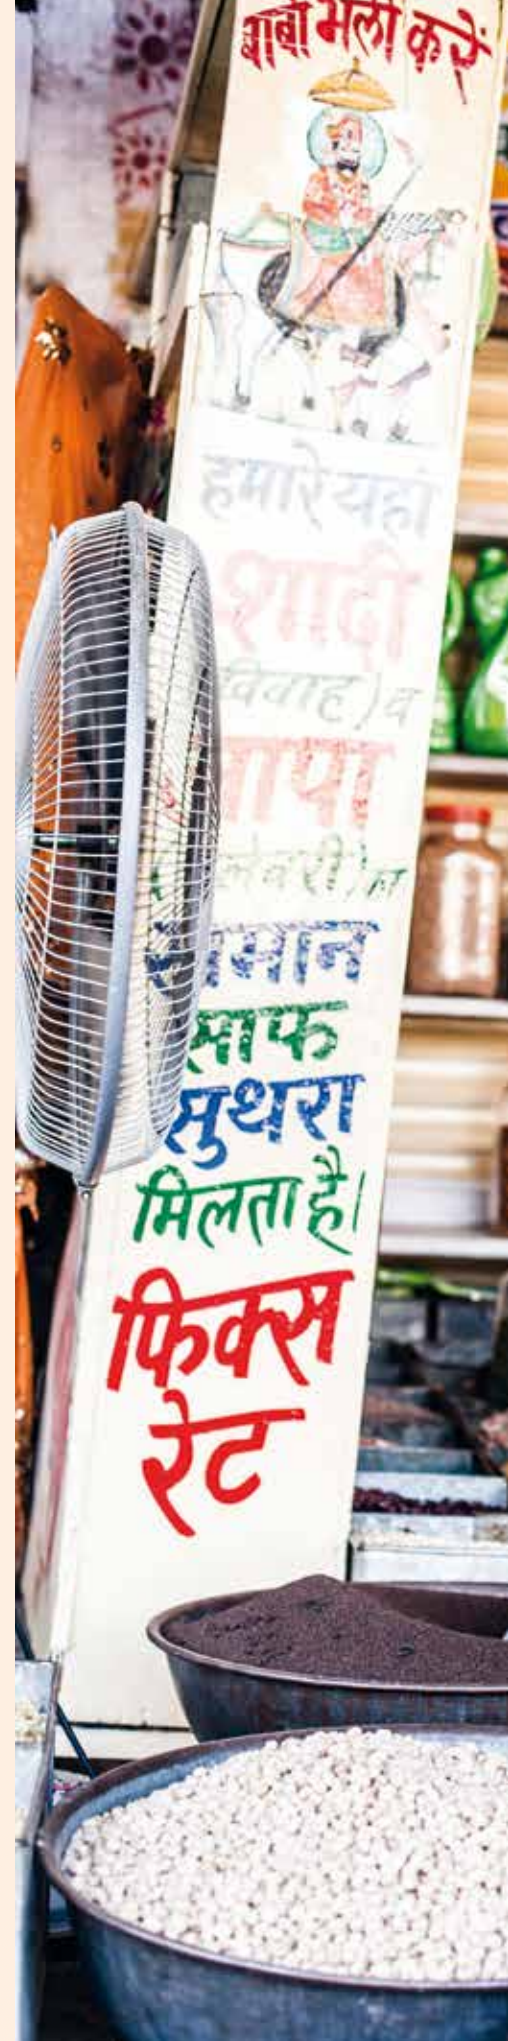 बाबा भली करें
हमारे यहां
शादी
विवाह) व
जापा
का
सामान
साफ
सुथरा
मिलता है।
फिक्स
रेट